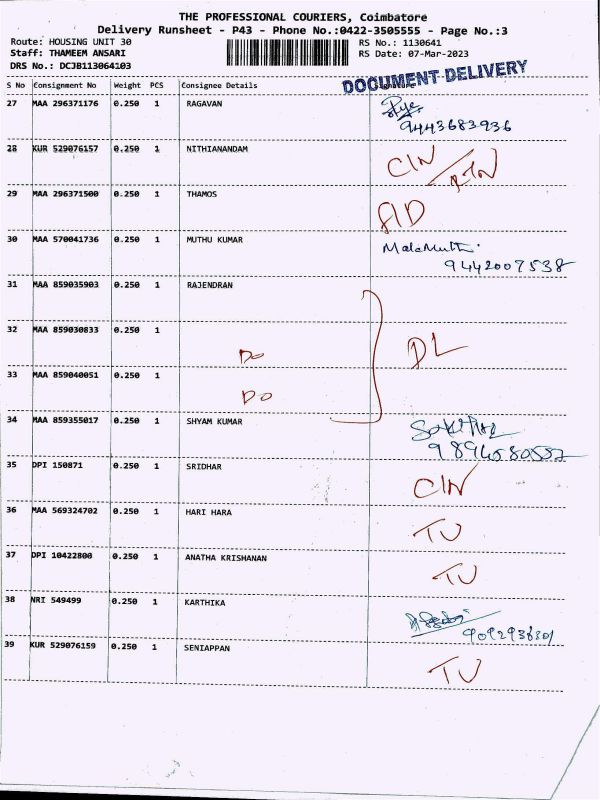 THE PROFESSIONAL COURIERS, Coimbatore
Delivery Runsheet - P43 - Phone No.:0422-3505555 - Page No.:3
Route: HOUSING UNIT 30 RS No.: 1130641
Staff: THAMEEM ANSARI RS Date: 07-Mar-2023
DRS No.: DCJB113064103 DOCUMENT DELIVERY
S No Consignment No Weight PCS Consignee Details
27 MAA 296371176 0.250 1 RAGAVAN
9443683936
28 KUR 529076157 0.250 1 NITHIANANDAM CIN / RTN
29 MAA 296371500 0.250 1 THAMOS
30 MAA 570041736 0.250 1 MUTHU KUMAR MalaMuthu.
9442007538
31 MAA 859035903 0.250 1 RAJENDRAN
32 MAA 859030833 0.250 1 DO DL
33 MAA 859040051 0.250 1 DO
34 MAA 859355017 0.250 1 SHYAM KUMAR
9894580557
35 DPI 150871 0.250 1 SRIDHAR CIN
36 MAA 569324702 0.250 1 HARI HARA TU
37 DPI 10422800 0.250 1 ANATHA KRISHANAN TU
38 NRI 549499 0.250 1 KARTHIKA
9092936801
39 KUR 529076159 0.250 1 SENIAPPAN TU